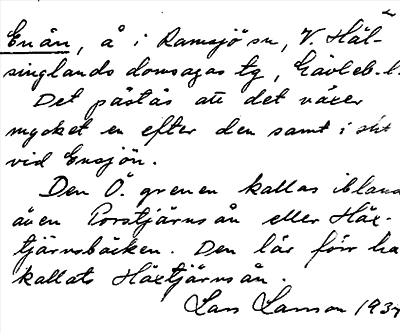 Enån, å i Ramsjö sn, V. Häl-
singlands domsagas tg, Gävleb. l.
Det påstås att det växer
mycket en efter den samt i
vid Ensjön.
Den Ö. grenen kallas ibland
även Porstjärnsån eller Häx-
tjärnsbäcken. Den lär förr ha
kallats Häxtjärnsån.
Lars Larsson 193